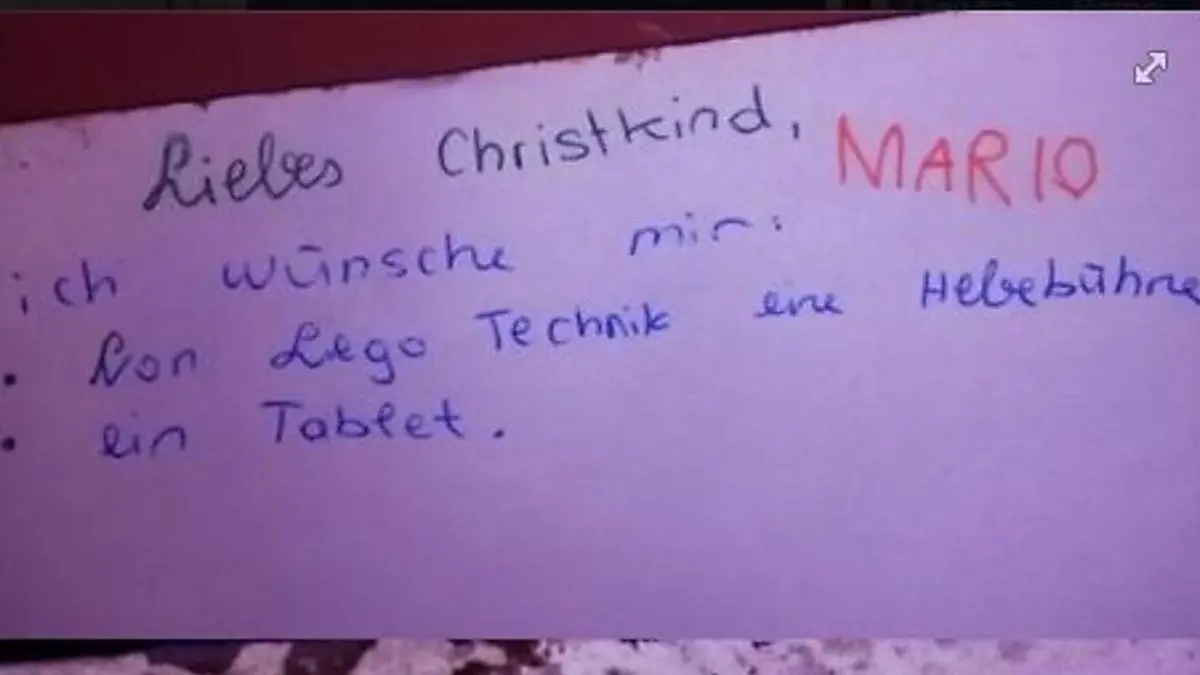 Liebes Christkind, MARIO
ich wünsche mir:
• Von Lego Technik eine Hebebühne
• ein Tablet.